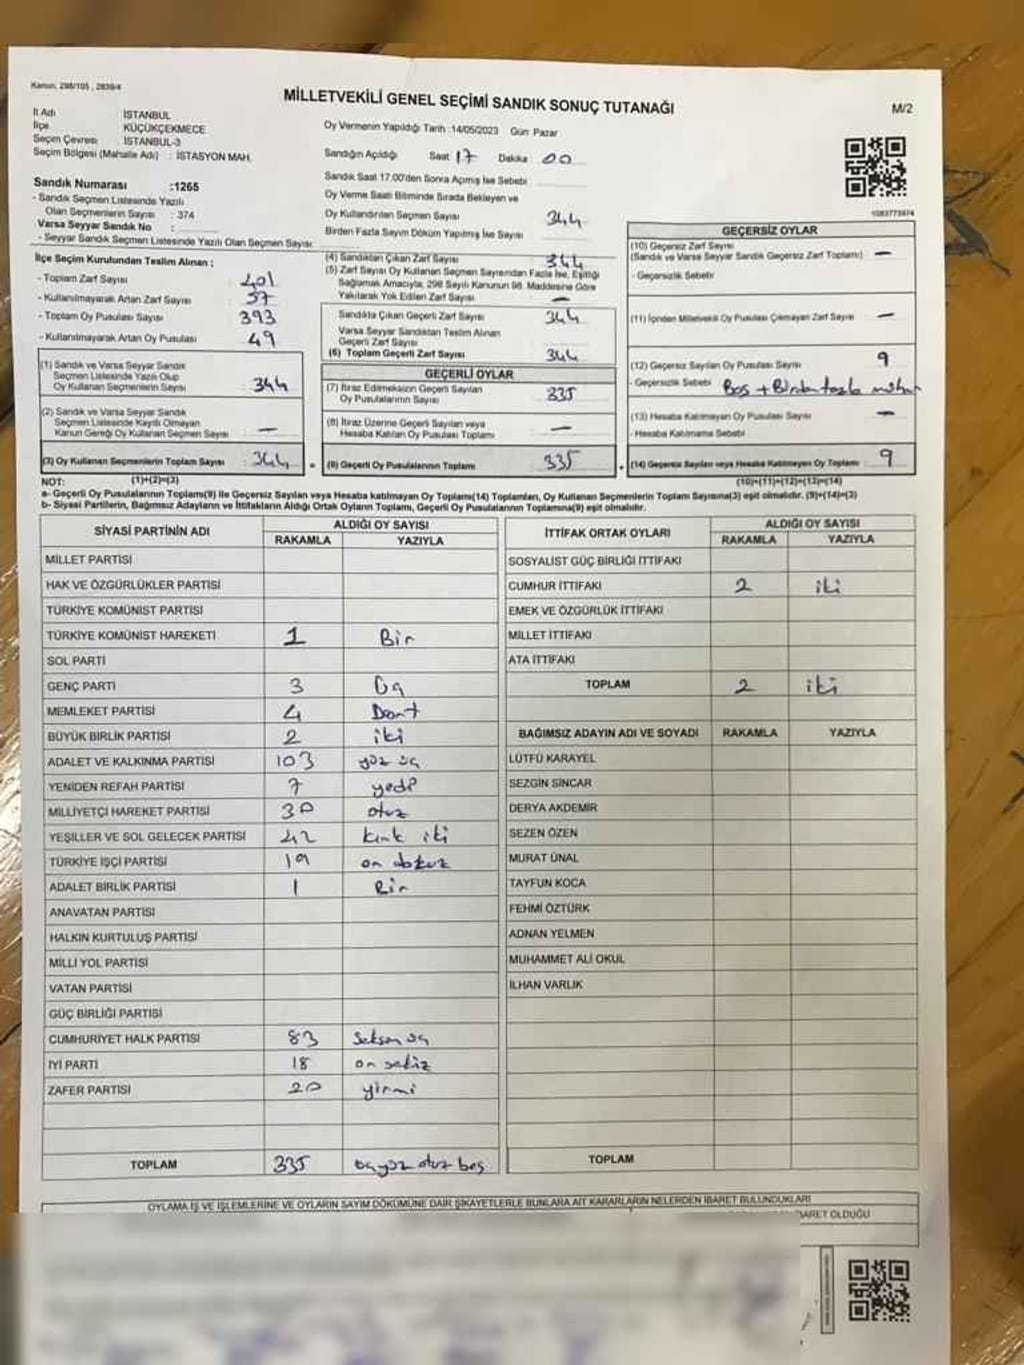 Kanun, 298/105 , 2839/4
MİLLETVEKİLİ GENEL SEÇİMİ SANDIK SONUÇ TUTANAĞI
M/2
İl Adı : İSTANBUL
İlçe : KÜÇÜKÇEKMECE
Seçim Çevresi : İSTANBUL-3
Seçim Bölgesi (Mahalle Adı) : İSTASYON MAH.
Oy Vermenin Yapıldığı Tarih :14/05/2023 Gün Pazar
Sandığın Açıldığı Saat 17 Dakika : 00
Sandık Saat 17.00'den Sonra Açmış İse Sebebi
Oy Verme Saati Bitiminde Sırada Bekleyen ve
Oy Kullandırılan Seçmen Sayısı 344
Birden Fazla Sayım Döküm Yapılmış İse Sayısı
1083773974
Sandık Numarası :1265
- Sandık Seçmen Listesinde Yazılı
Olan Seçmenlerin Sayısı : 374
Varsa Seyyar Sandık No :
- Seyyar Sandık Seçmen Listesinde Yazılı Olan Seçmen Sayısı
İlçe Seçim Kurulundan Teslim Alınan :
- Toplam Zarf Sayısı 401
- Kullanılmayarak Artan Zarf Sayısı 57
- Toplam Oy Pusulası Sayısı 393
- Kullanılmayarak Artan Oy Pusulası 49
(1) Sandık ve Varsa Seyyar Sandık
Seçmen Listesinde Yazılı Olup
Oy Kullanan Seçmenlerin Sayısı 344
(2) Sandık ve Varsa Seyyar Sandık
Seçmen Listesinde Kayıtlı Olmayan
Kanun Gereği Oy Kullanan Seçmen Sayısı —
(3) Oy Kullanan Seçmenlerin Toplam Sayısı : 344
(1)+(2)=(3)
(4) Sandıktan Çıkan Zarf Sayısı 344
(5) Zarf Sayısı Oy Kullanan Seçmen Sayısından Fazla İse, Eşitliği
Sağlamak Amacıyla, 298 Sayılı Kanunun 98. Maddesine Göre
Yakılarak Yok Edilen Zarf Sayısı —
Sandıkta Çıkan Geçerli Zarf Sayısı 344
Varsa Seyyar Sandıktan Teslim Alınan
Geçerli Zarf Sayısı
(6) Toplam Geçerli Zarf Sayısı 344
GEÇERLİ OYLAR
(7) İtiraz Edilmeksizin Geçerli Sayılan
Oy Pusulalarının Sayısı 335
(8) İtiraz Üzerine Geçerli Sayılan veya
Hesaba Katılan Oy Pusulası Toplamı —
= (9) Geçerli Oy Pusulalarının Toplamı 335
GEÇERSİZ OYLAR
(10) Geçersiz Zarf Sayısı
(Sandık ve Varsa Seyyar Sandık Geçersiz Zarf Toplamı) —
- Geçersizlik Sebebi
(11) İçinden Milletvekili Oy Pusulası Çıkmayan Zarf Sayısı —
(12) Geçersiz Sayılan Oy Pusulası Sayısı 9
- Geçersizlik Sebebi Boş + Birden fazla mühür
(13) Hesaba Katılmayan Oy Pusulası Sayısı —
- Hesaba Katılmama Sebebi
+ (14) Geçersiz Sayılan veya Hesaba Katılmayan Oy Toplamı : 9
(10)+(11)+(12)+(13)=(14)
NOT:
a- Geçerli Oy Pusulalarının Toplamı(9) ile Geçersiz Sayılan veya Hesaba katılmayan Oy Toplamı(14) Toplamları, Oy Kullanan Seçmenlerin Toplam Sayısına(3) eşit olmalıdır. (9)+(14)=(3)
b- Siyasi Partilerin, Bağımsız Adayların ve İttifakların Aldığı Ortak Oyların Toplamı, Geçerli Oy Pusulalarının Toplamına(9) eşit olmalıdır.
SİYASİ PARTİNİN ADI ALDIĞI OY SAYISI
RAKAMLA YAZIYLA
MİLLET PARTİSİ
HAK VE ÖZGÜRLÜKLER PARTİSİ
TÜRKİYE KOMÜNİST PARTİSİ
TÜRKİYE KOMÜNİST HAREKETİ 1 Bir
SOL PARTİ
GENÇ PARTİ 3 Üç
MEMLEKET PARTİSİ 4 Dört
BÜYÜK BİRLİK PARTİSİ 2 iki
ADALET VE KALKINMA PARTİSİ 103 yüz üç
YENİDEN REFAH PARTİSİ 7 yedi
MİLLİYETÇİ HAREKET PARTİSİ 30 otuz
YEŞİLLER VE SOL GELECEK PARTİSİ 42 kırk iki
TÜRKİYE İŞÇİ PARTİSİ 19 on dokuz
ADALET BİRLİK PARTİSİ 1 Bir
ANAVATAN PARTİSİ
HALKIN KURTULUŞ PARTİSİ
MİLLİ YOL PARTİSİ
VATAN PARTİSİ
GÜÇ BİRLİĞİ PARTİSİ
CUMHURİYET HALK PARTİSİ 83 Seksen üç
İYİ PARTİ 18 on sekiz
ZAFER PARTİSİ 20 yirmi
TOPLAM 335 üçyüz otuz beş
İTTİFAK ORTAK OYLARI ALDIĞI OY SAYISI
RAKAMLA YAZIYLA
SOSYALİST GÜÇ BİRLİĞİ İTTİFAKI
CUMHUR İTTİFAKI 2 iki
EMEK VE ÖZGÜRLÜK İTTİFAKI
MİLLET İTTİFAKI
ATA İTTİFAKI
TOPLAM 2 iki
BAĞIMSIZ ADAYIN ADI VE SOYADI RAKAMLA YAZIYLA
LÜTFÜ KARAYEL
SEZGİN SİNCAR
DERYA AKDEMİR
SEZEN ÖZEN
MURAT ÜNAL
TAYFUN KOCA
FEHMİ ÖZTÜRK
ADNAN YELMEN
MUHAMMET ALİ OKUL
İLHAN VARLIK
TOPLAM
OYLAMA İŞ VE İŞLEMLERİNE VE OYLARIN SAYIM DÖKÜMÜNE DAİR ŞİKAYETLERLE BUNLARA AİT KARARLARIN NELERDEN İBARET BULUNDUKLARI
İBARET OLDUĞU